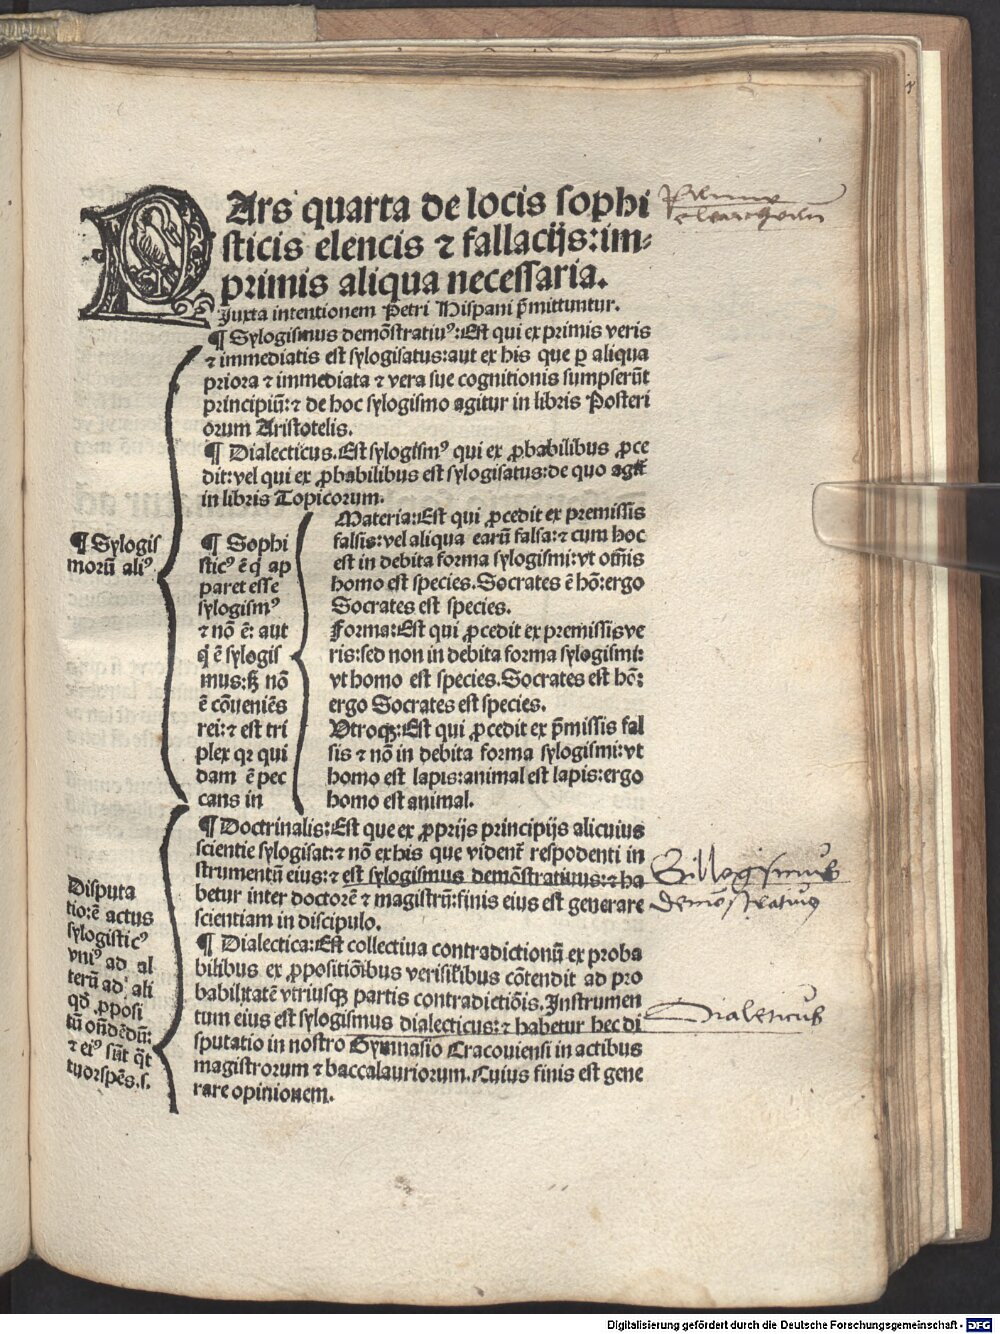 PArs quarta de locis sophi
sticis elencis ⁊ fallacijs: im⸗
primis aliqua necessaria.
Juxta intentionem Petri Hispani p̄mittuntur.
¶ Sylogismus demōstratiuꝰ: Est qui ex primis veris
⁊ immediatis est sylogisatus: aut ex his que ꝑ aliqua
priora ⁊ immediata ⁊ vera sue cognitionis sumpserūt
principiū: ⁊ de hoc sylogismo agitur in libris Posteri
orum Aristotelis.
¶ Dialecticus. Est sylogismꝰ qui ex ꝓbabilibus ꝓce
dit: vel qui ex ꝓbabilibus est sylogisatus: de quo agit̄
in libris Topicorum.
¶ Sylogis
morū aliꝰ
¶ Sophi
sticꝰ ē q̇ ap
paret esse
sylogismꝰ
⁊ nō ē: aut
q̇ ē sylogis
mus: sꝫ nō
ē cōueniēs
rei: ⁊ est tri
plex qꝛ qui
dam ē pec
cans in
Materia: Est qui ꝓcedit ex premissis
falsis: vel aliqua earū falsa: ⁊ cum hoc
est in debita forma sylogismi: vt om̄is
homo est species. Socrates ē hō: ergo
Socrates est species.
Forma: Est qui ꝓcedit ex premissis ve
ris: sed non in debita forma sylogismi:
vt homo est species. Socrates est hō:
ergo Socrates est species.
Vtroqꝫ: Est qui ꝓcedit ex p̄missis fal
sis ⁊ nō in debita forma sylogismi: vt
homo est lapis: animal est lapis: ergo
homo est animal.
Disputa
tio: ē actus
sylogisticꝰ
vniꝰ ad al
terū ad ali
qd̄ ꝓposi
tū ōndēdū:
⁊ eiꝰ sūt q̄t
tuor spēs. s.
¶ Doctrinalis: Est que ex ꝓprijs principijs alicuius
scientie sylogisat: ⁊ nō ex his que vident̄ respodenti in
strumentū eius: ⁊ est sylogismus demōstratiuus: ⁊ ha
betur inter doctorē ⁊ magistrū: finis eius est generare
scientiam in discipulo.
¶ Dialectica: Est collectiua contradictionū ex proba
bilibus ex ꝓpositiōibus verisil̄ibus cōtendit ad pro
babilitatē vtriusqꝫ partis contradictiōis. Instrumen
tum eius est sylogismus dialecticus: ⁊ habetur hec di
sputatio in nostro Gymnasio Cracouiensi in actibus
magistrorum ⁊ baccalauriorum. Cuius finis est gene
rare opinionem.
Sillogismus
demōstratiuus
Dialeticus
Digitalisierung gefördert durch die Deutsche Forschungsgemeinschaft - DFG